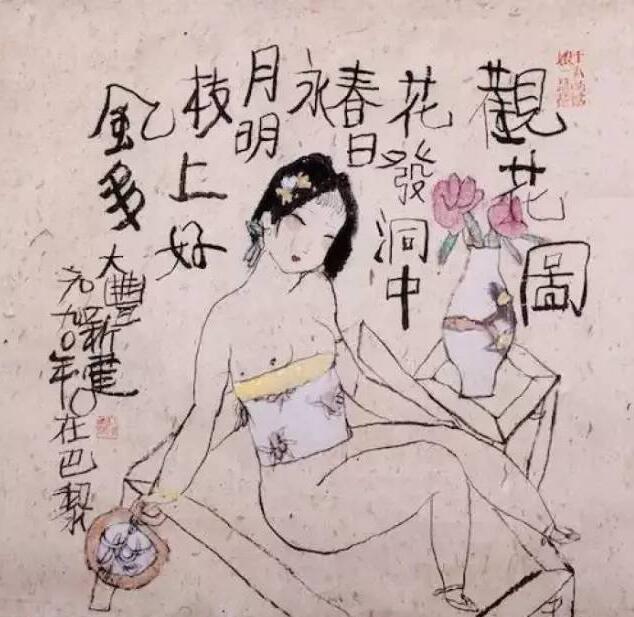 觀花圖
花發洞中
春日
永
月明
枝上好
風多
大豐新建
九0年10在巴黎